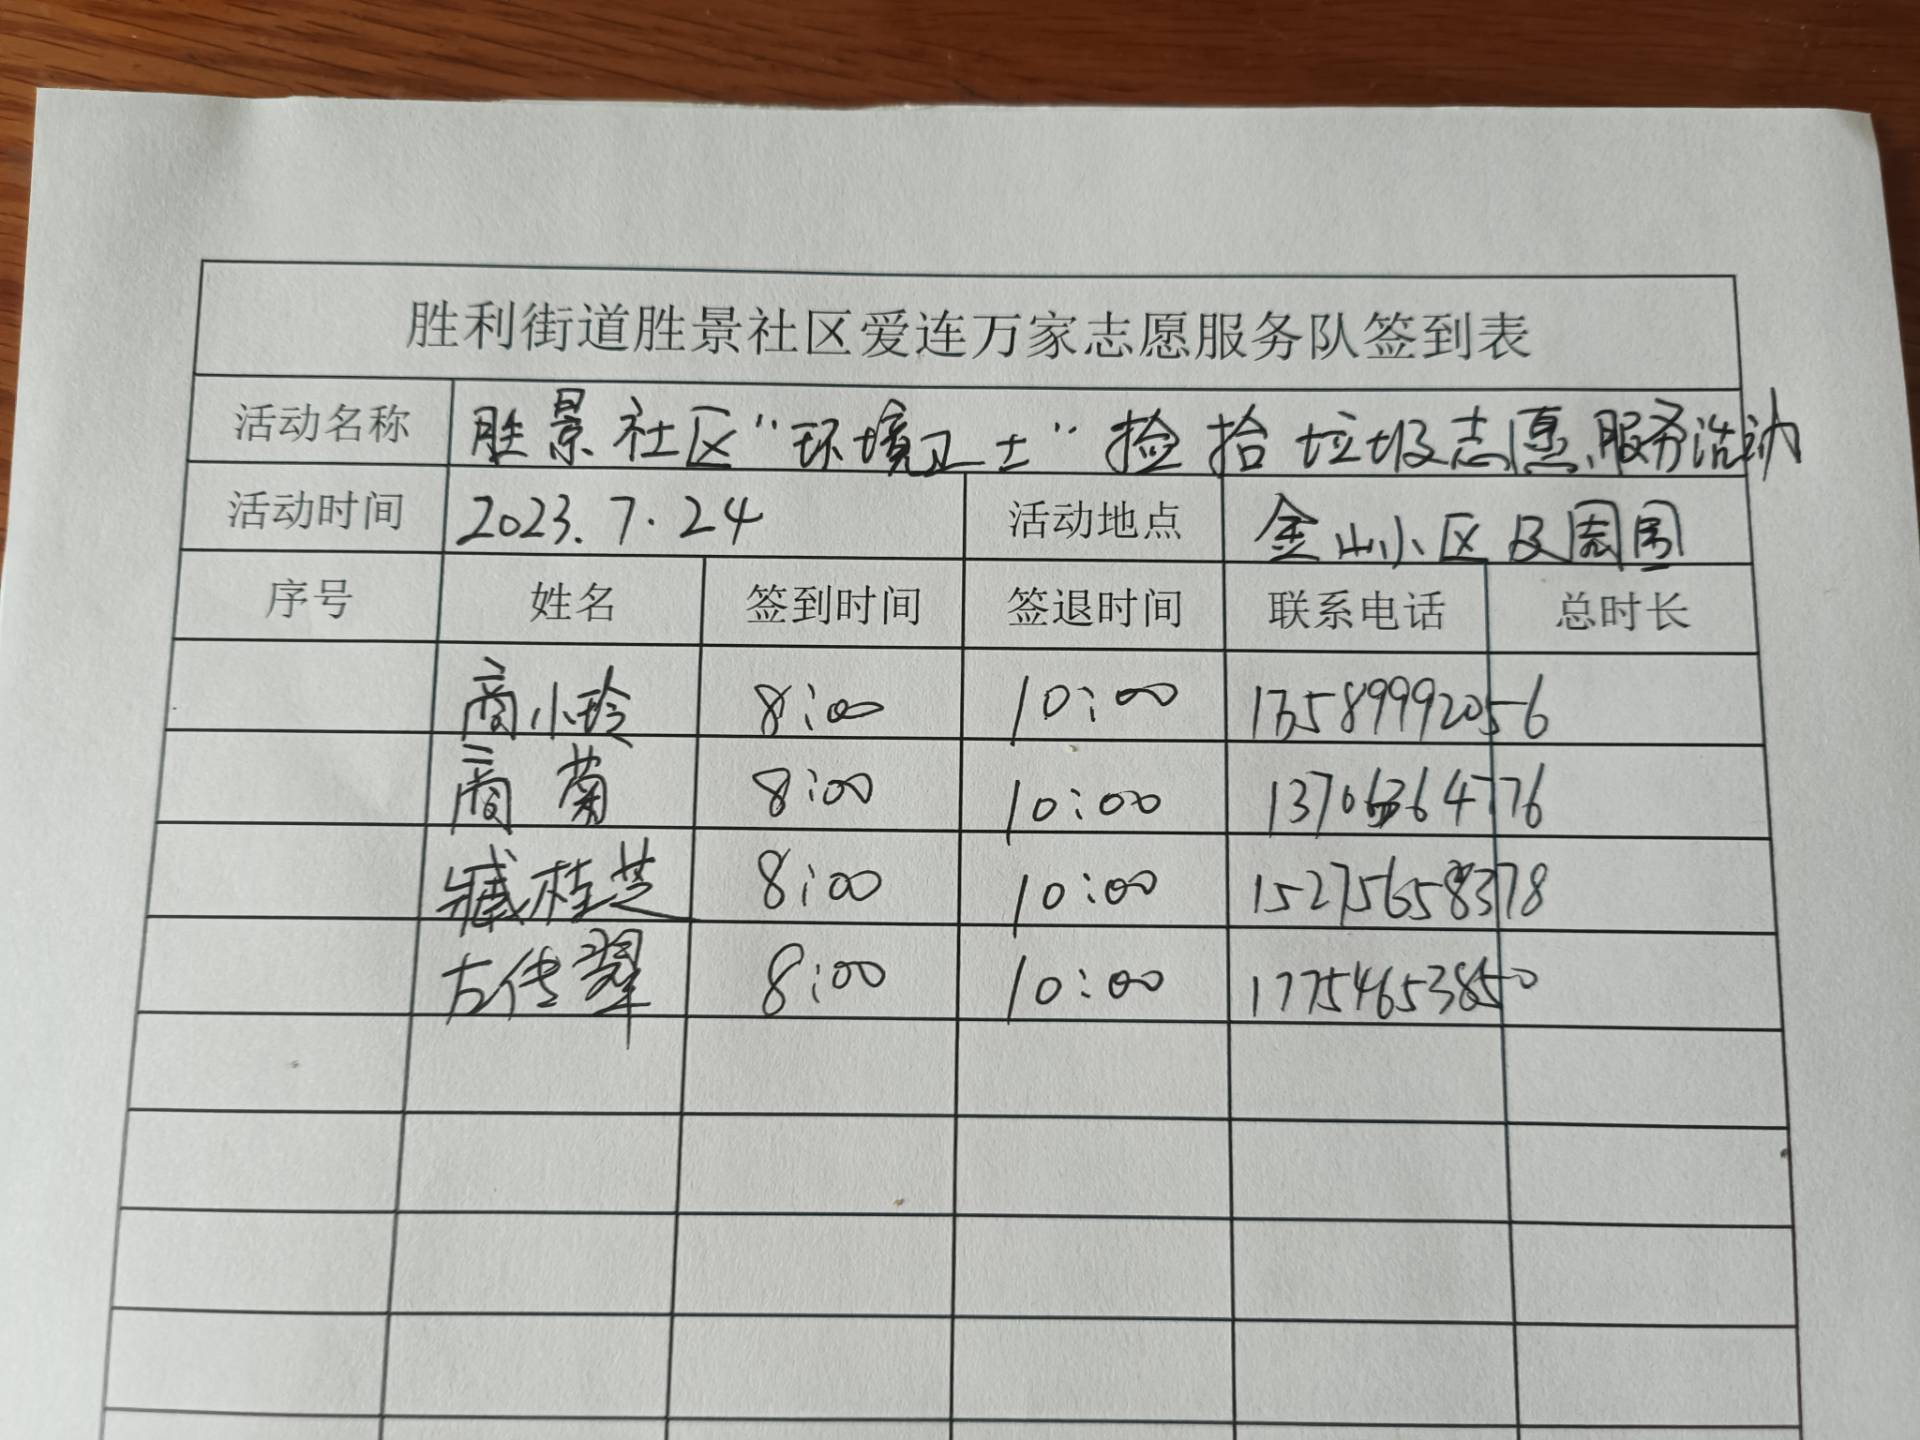 胜利街道胜景社区爱连万家志愿服务队签到表
活动名称 胜景社区“环境卫士”捡拾垃圾志愿服务活动
活动时间 2023.7.24 活动地点 金山小区及周围
序号 姓名 签到时间 签退时间 联系电话 总时长
商小玲 8:00 10:00 13589992056
商菊 8:00 10:00 13706364776
臧桂芝 8:00 10:00 15275658378
古传翠 8:00 10:00 17754653850